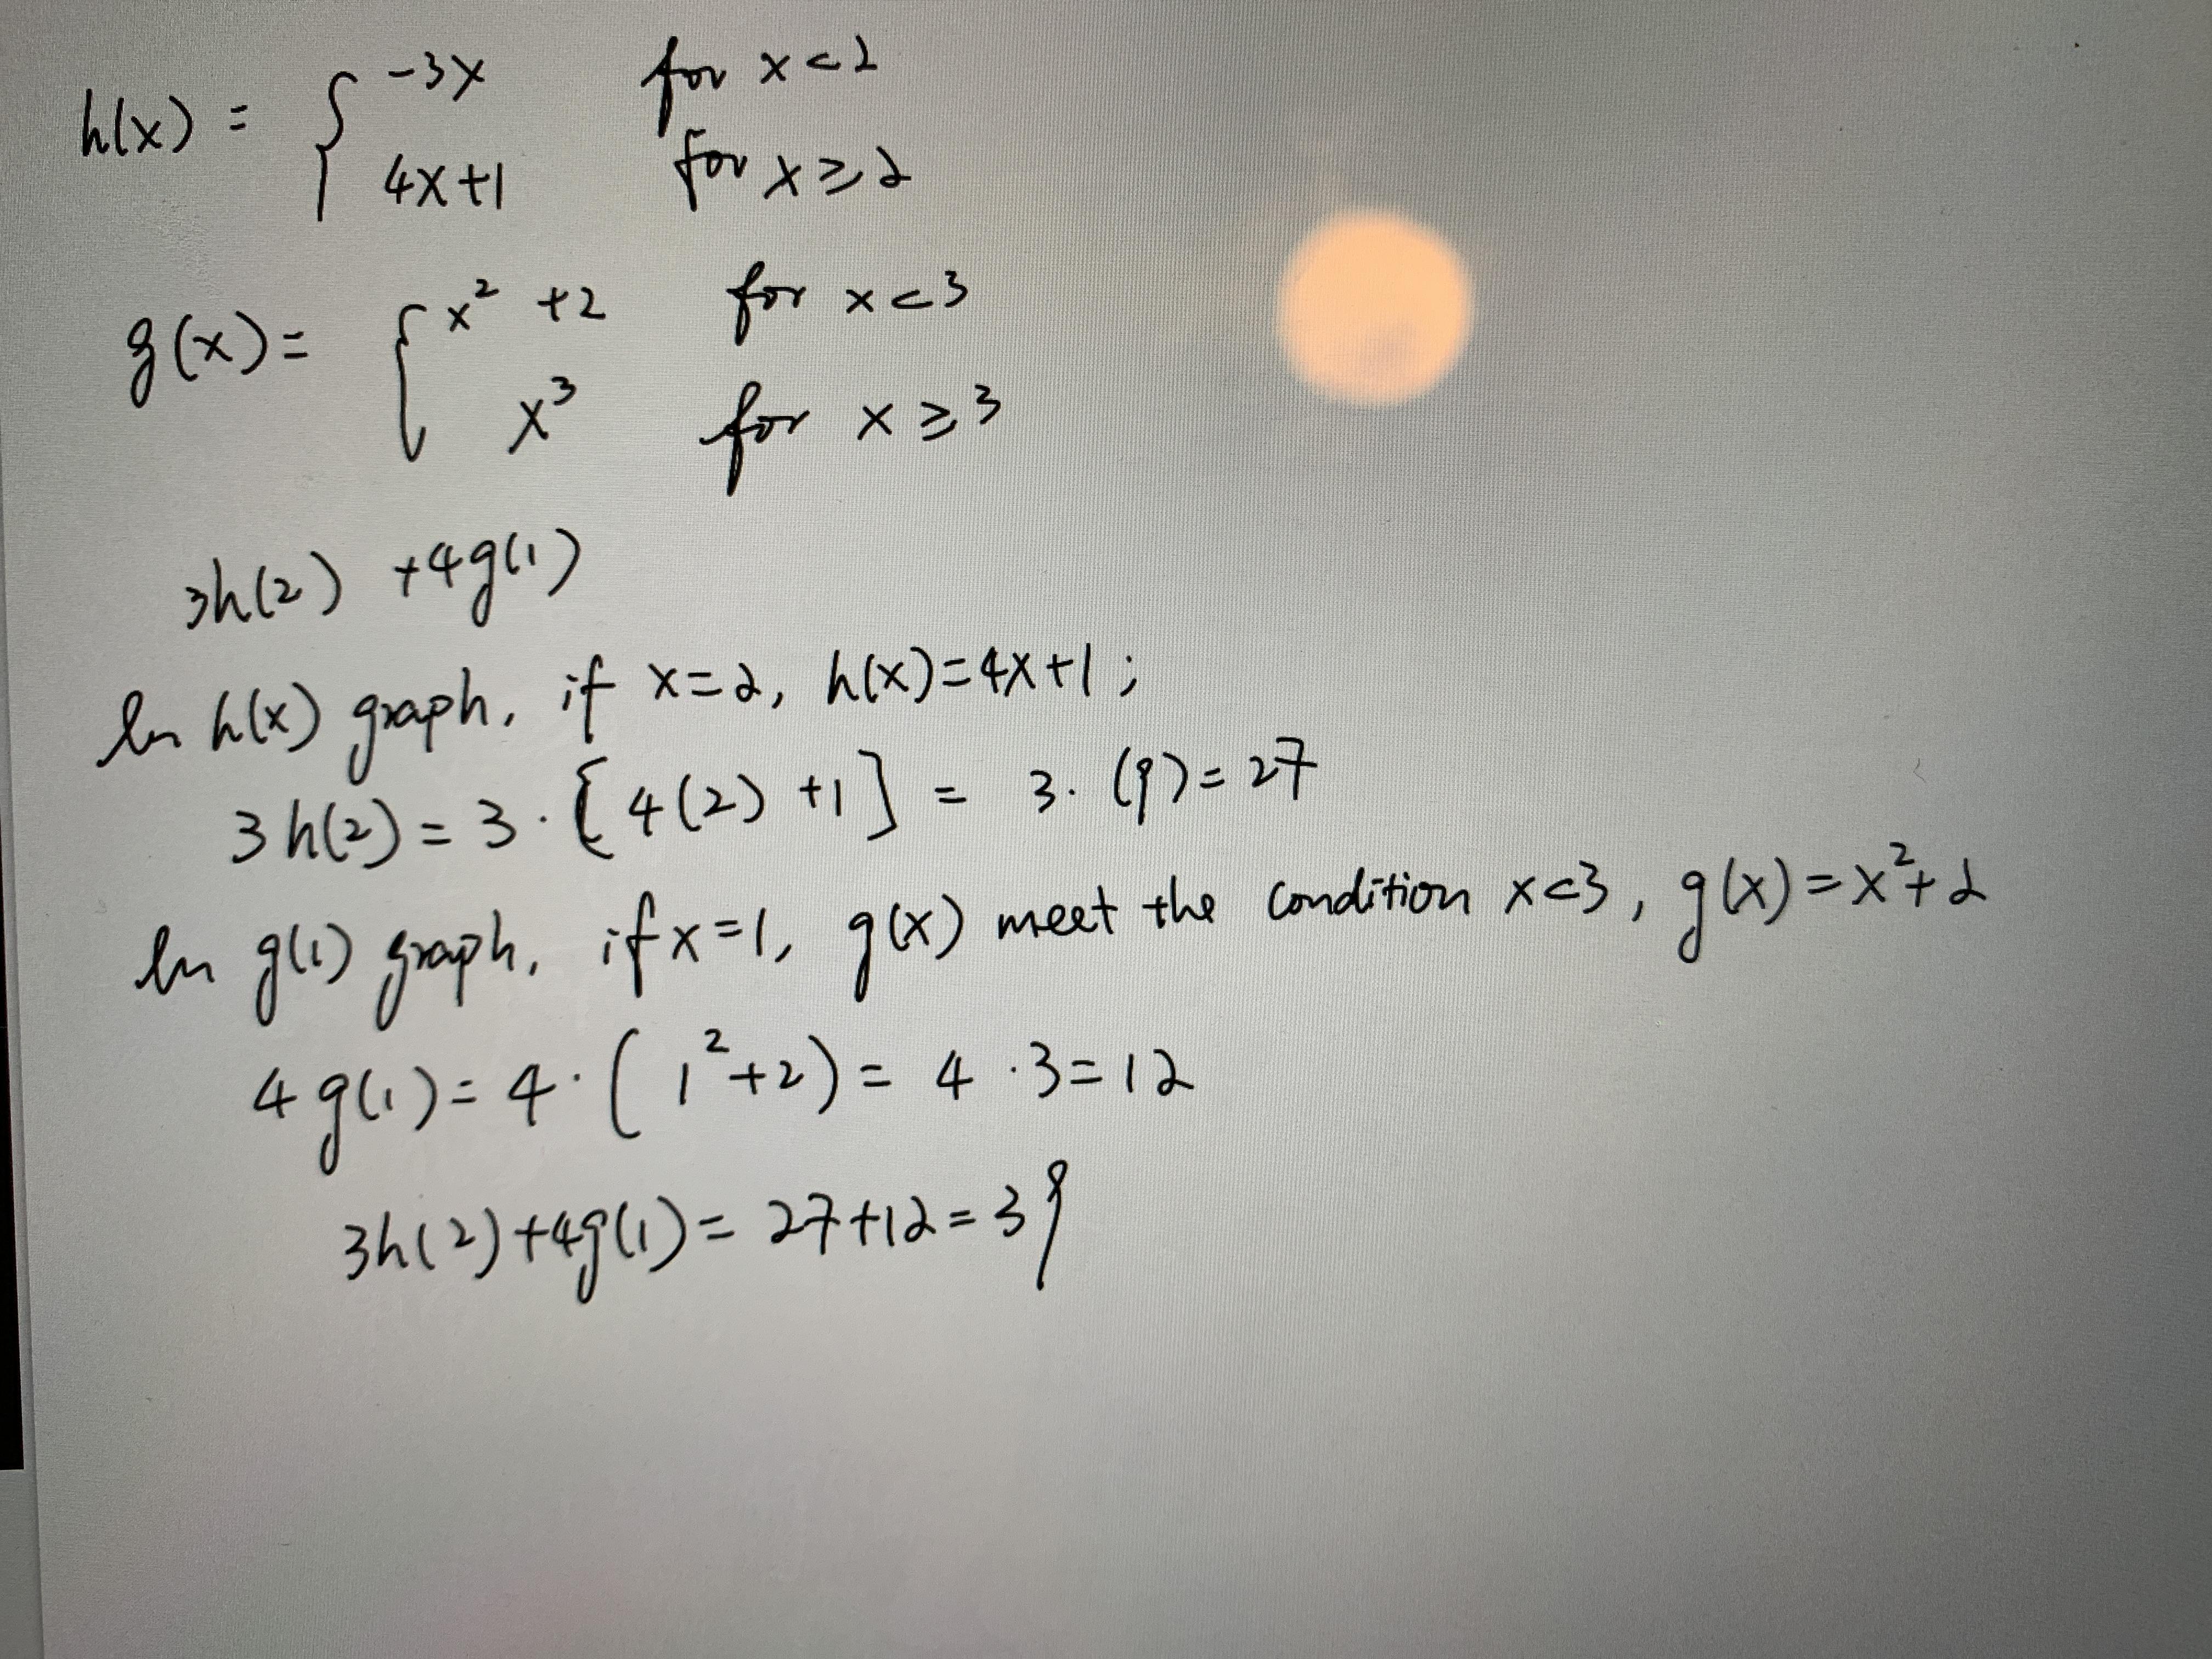 h(x) = { -3x for x < 2
4x+1 for x ≥ 2
g(x) = { x² +2 for x < 3
x³ for x ≥ 3
3h(2) +4g(1)
In h(x) graph, if x=2, h(x)=4x+1;
3h(2) = 3·[4(2) +1] = 3·(9) = 27
In g(1) graph, if x=1, g(x) meet the condition x<3, g(x)=x²+2
4g(1) = 4·(1²+2) = 4·3=12
3h(2)+4g(1) = 27+12=39